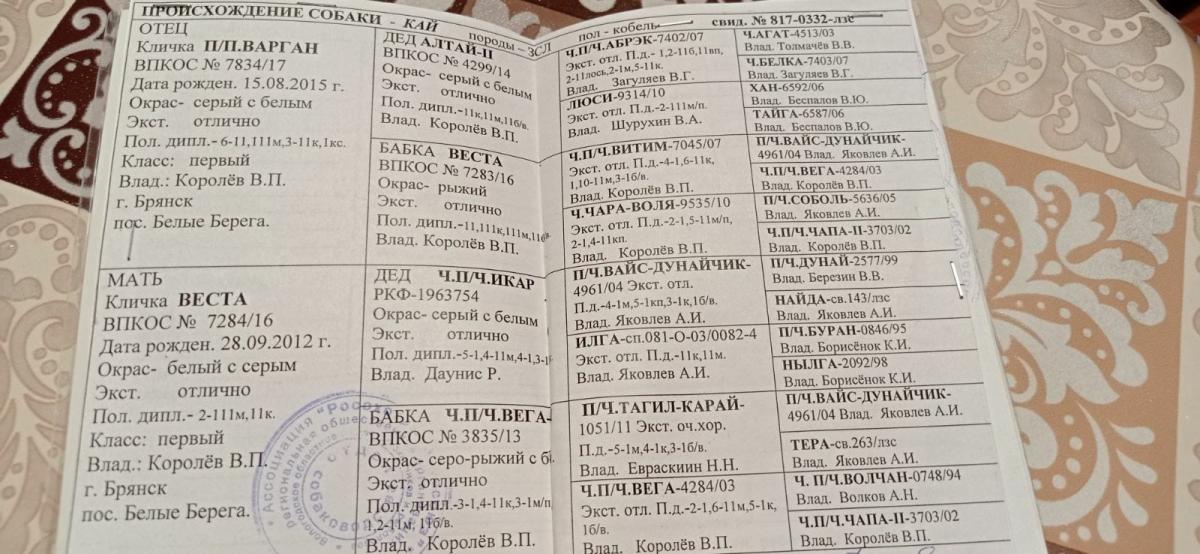 ПРОИСХОЖДЕНИЕ СОБАКИ - КАЙ породы – ЗСЛ пол - кобель свид. № 817-0332-лзс
ОТЕЦ
Кличка П/П.ВАРГАН
ВПКОС № 7834/17
Дата рожден. 15.08.2015 г.
Окрас- серый с белым
Экст. отлично
Пол. дипл.- 6-11,111м,3-11к,1кс.
Класс: первый
Влад.: Королёв В.П.
г. Брянск
пос. Белые Берега.
МАТЬ
Кличка ВЕСТА
ВПКОС № 7284/16
Дата рожден. 28.09.2012 г.
Окрас- белый с серым
Экст. отлично
Пол. дипл.- 2-111м,11к.
Класс: первый
Влад.: Королёв В.П.
г. Брянск
пос. Белые Берега.
ДЕД АЛТАЙ-П
ВПКОС № 4299/14
Окрас- серый с белым
Экст. отлично
Пол. дипл.-11к,11м,11б/в.
Влад. Королёв В.П.
БАБКА ВЕСТА
ВПКОС № 7283/16
Окрас- рыжий
Экст. отлично
Пол. дипл.-11,111к,111м,11б/в.
Влад. Королёв В.П.
ДЕД Ч.П/Ч.ИКАР
РКФ-1963754
Окрас- серый с белым
Экст. отлично
Пол. дипл.-5-1,4-11м,4-1,3-1
Влад. Даунис Р.
БАБКА Ч.П/Ч.ВЕГА-
ВПКОС № 3835/13
Окрас- серо-рыжий с б
Экст. отлично
Пол. дипл.-3-1,4-11к,3-1м/п,
1,2-11м, 11б/в.
Влад. Королёв В.П.
Ч.П/Ч.АБРЭК-7402/07
Экст. отл. П.д.- 1,2-11б,11вп,
2-11лось,2-1м,5-11к.
Влад. Загуляев В.Г.
ЛЮСИ-9314/10
Экст. отл. П.д.-2-111м/п.
Влад. Шурухин В.А.
Ч.П/Ч.ВИТИМ-7045/07
Экст. отл. П.д.-4-1,6-11к,
1,10-11м,3-1б/в.
Влад. Королёв В.П.
Ч.ЧАРА-ВОЛЯ-9535/10
Экст. отл. П.д.-2-1,5-11м/п,
2-1,4-11кп.
Влад. Королёв В.П.
П/Ч.ВАЙС-ДУНАЙЧИК-
4961/04 Экст. отл.
П.д.-4-1м,5-1кп,3-1к,1б/в.
Влад. Яковлев А.И.
ИЛГА-сп.081-О-03/0082-4
Экст. отл. П.д.-11к,11м.
Влад. Яковлев А.И.
П/Ч.ТАГИЛ-КАРАЙ-
1051/11 Экст. оч.хор.
П.д.-5-1м,4-1к,3-1б/в.
Влад. Евраскиин Н.Н.
Ч.П/Ч.ВЕГА-4284/03
Экст. отл. П.д.-2-1,6-11м,5-1к,
1б/в.
Влад. Королев В.П.
Ч.АГАТ-4513/03
Влад. Толмачёв В.В.
Ч.БЕЛКА-7403/07
Влад. Загуляев В.Г.
ХАН-6592/06
Влад. Беспалов В.Ю.
ТАЙГА-6587/06
Влад. Беспалов В.Ю.
П/Ч.ВАЙС-ДУНАЙЧИК-
4961/04 Влад. Яковлев А.И.
Ч.П/Ч.ВЕГА-4284/03
Влад. Королёв В.П.
П/Ч.СОБОЛЬ-5636/05
Влад. Яковлев А.И.
Ч.П/Ч.ЧАПА-II-3703/02
Влад. Королёв В.П.
П/Ч.ДУНАЙ-2577/99
Влад. Березин В.В.
НАЙДА-св.143/лзс
Влад. Яковлев А.И.
П/Ч.БУРАН-0846/95
Влад. Борисёнок К.И.
НЫЛГА-2092/98
Влад. Борисёнок К.И.
П/Ч.ВАЙС-ДУНАЙЧИК-
4961/04 Влад. Яковлев А.И.
ТЕРА-св.263/лзс
Влад. Яковлев А.И.
Ч. П/Ч.ВОЛЧАН-0748/94
Влад. Волков А.Н.
Ч.П/Ч.ЧАПА-II-3703/02
Влад. Королев В.П.
Ассоциация "Росох
Региональная обществ